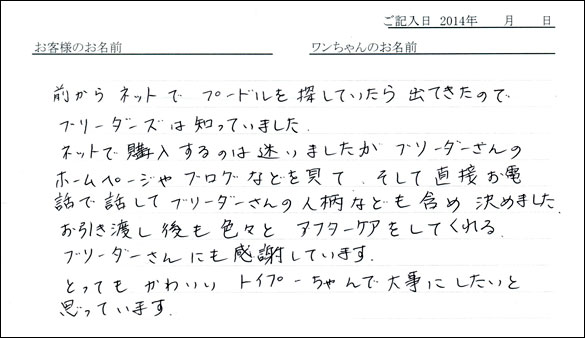 ご記入日 2014年 月 日
お客様のお名前 ワンちゃんのお名前
前から ネットで プードルを 探していたら 出てきたので
ブリーダーズは知っていました.
ネットで購入するのは迷いましたが ブリーダーさんの
ホームページや ブログなどを見て、そして直接お電
話で話して ブリーダーさんの人柄なども 含め 決めました.
お引き渡し後も色々と アフターケアをしてくれる.
ブリーダーさんにも感謝しています.
とっても かわいい トイプーちゃんで大事にしたいと
思っています.